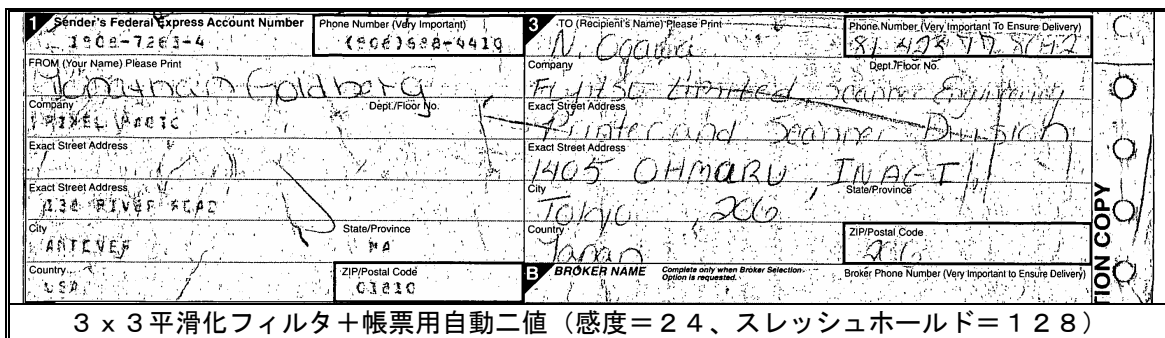 1 Sender's Federal Express Account Number
1908-7263-4
Phone Number (Very Important)
(508)688-4419
FROM (Your Name) Please Print
Jonathain Goldberg
Company
Dept./Floor No.
PIXEL MAGIC
Exact Street Address
Exact Street Address
138 RIVER ROAD
City
State/Province
ANTEVER
MA
Country
ZIP/Postal Code
USA
01810
3 TO (Recipient's Name) Please Print
N. Ogawa
Phone Number (Very Important To Ensure Delivery)
81 423 77
Company
Dept./Floor No.
Limited, Scanner Engineering
Exact Street Address
Printer and Scanner Division
Exact Street Address
1405 OHMARU INAGI
City
State/Province
Tokyo, 206
Country
ZIP/Postal Code
Japan
206
B BROKER NAME
Complete only when Broker Selection Option is requested.
Broker Phone Number (Very Important to Ensure Delivery)
TION COPY
3x3平滑化フィルタ+帳票用自動二値(感度=24、スレッシュホールド=128)